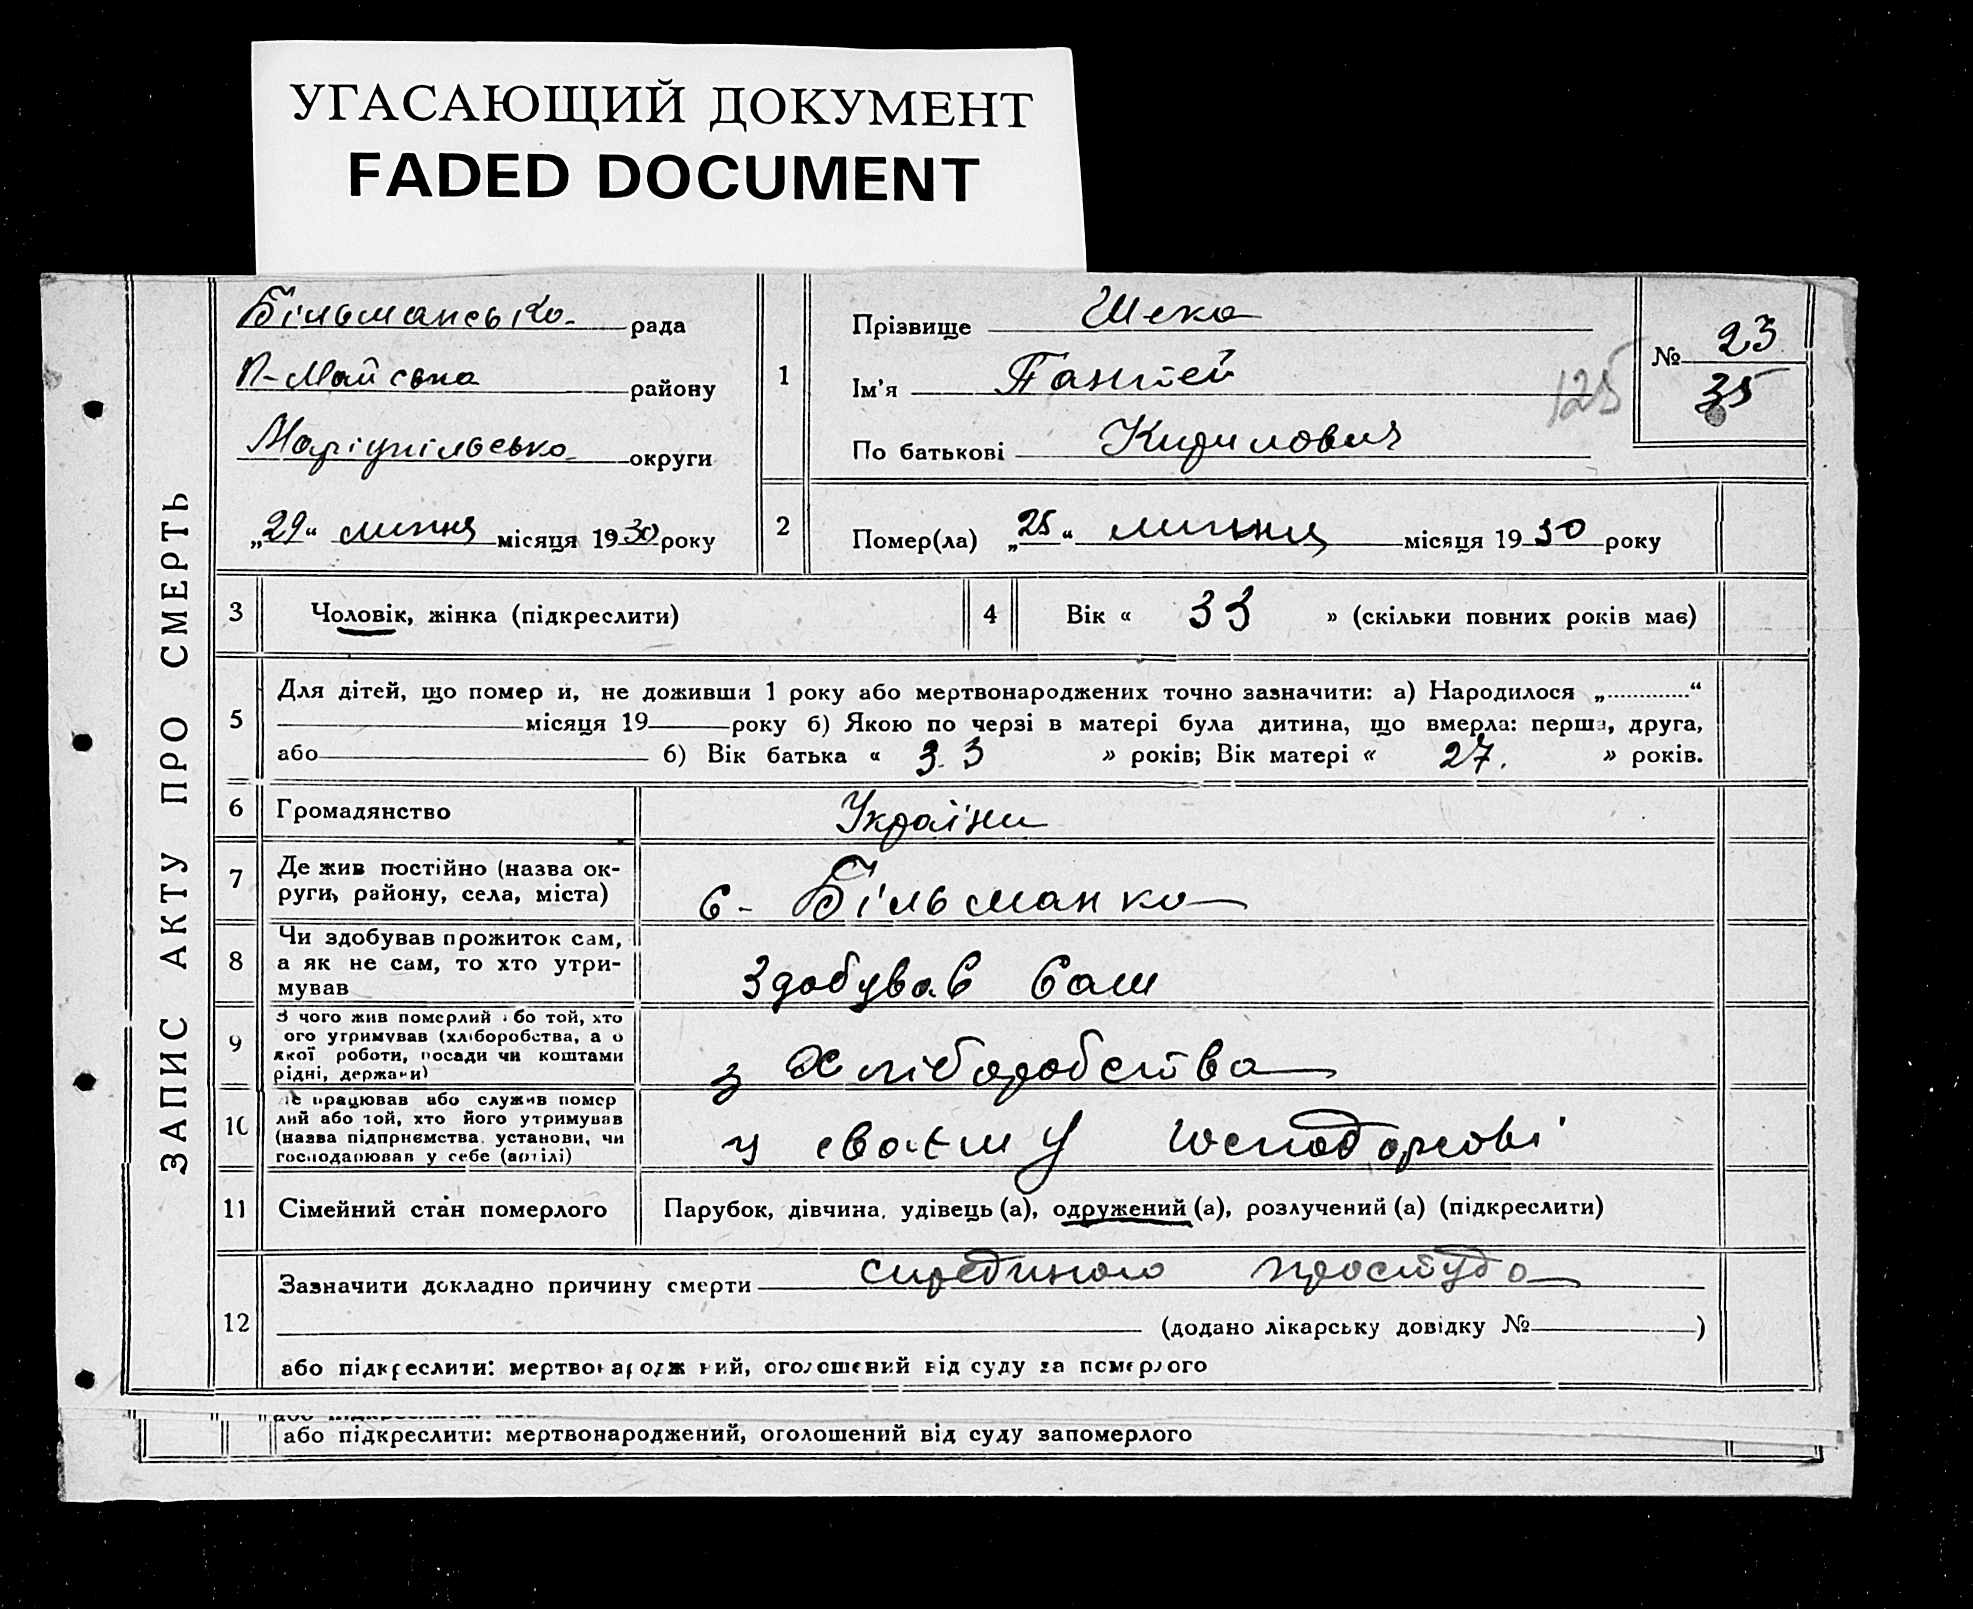 УГАСАЮЩИЙ ДОКУМЕНТ
FADED DOCUMENT
ЗАПИС АКТУ ПРО СМЕРТЬ
Більманська рада
П-Майська району
Маріупільська округи
„29“ липня місяця 1930 року
1
Прізвище Шека
Ім'я Пантей
По батькові Кирилович
125
№ 23
35
2
Помер(ла) „25“ липня місяця 1930 року
3 Чоловік, жінка (підкреслити)
4 Вік « 33 » (скільки повних років має)
5
Для дітей, що помер и, не доживши 1 року або мертвонароджених точно зазначити: а) Народилося „.............“
місяця 19 року б) Якою по черзі в матері була дитина, що вмерла: перша, друга,
або б) Вік батька « 33 » років; Вік матері « 27. » років.
6 Громадянство України
7 Де жив постійно (назва ок-
руги, району, села, міста)
с- Більманка
8 Чи здобував прожиток сам,
а як не сам, то хто утри-
мував
Здобував сам
9 З чого жив померлий або той, хто
ого утримував (хліборобства, а о
якої роботи, посади чи коштами
рідні, держави)
з хліборобства
10 Де працював або служив помер
лий або той, хто його утримував
(назва підприємства, установи, чи
господарював у себе (артілі)
у своєму господарстві
11 Сімейний стан померлого Парубок, дівчина, удівець (а), одружений (а), розлучений (а) (підкреслити)
12
Зазначити докладно причину смерти простуда
(додано лікарську довідку № )
або підкреслити: мертвонароджений, оголошений від суду за померлого
або підкреслити: мертвонароджений, оголошений від суду запомерлого